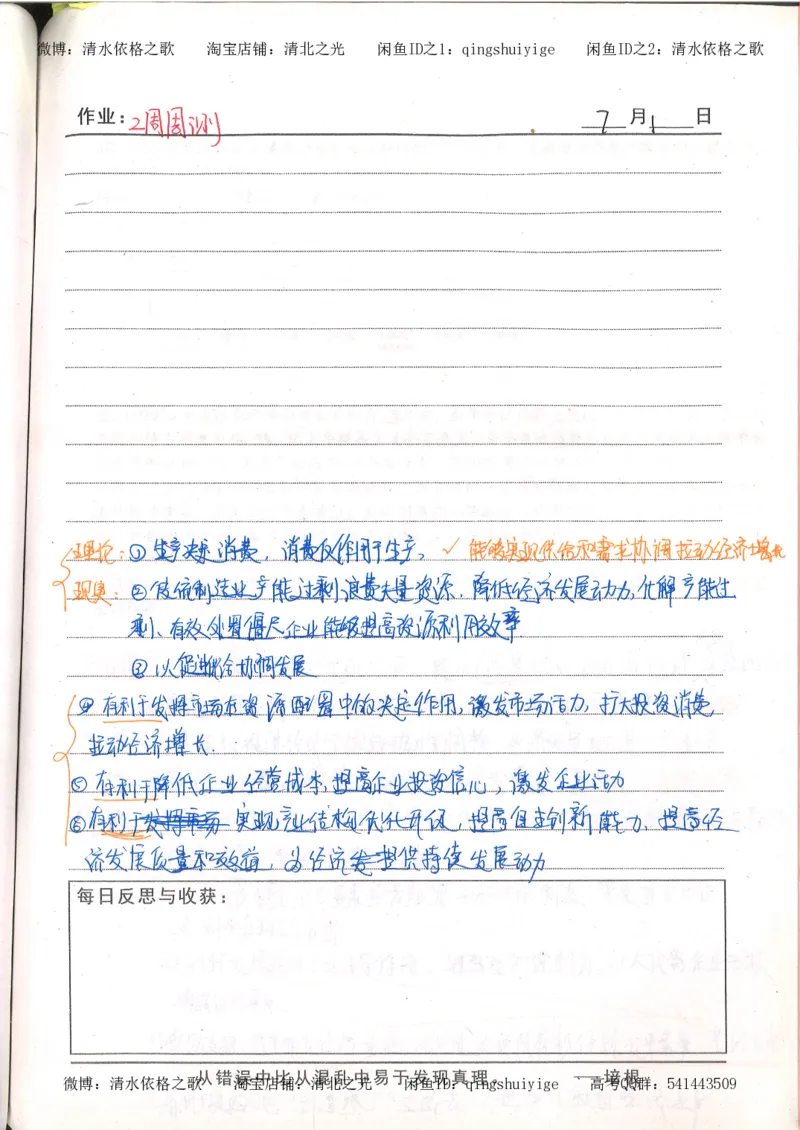 微博：清水依格之歌 淘宝店铺：清北之光 闲鱼ID之1：qingshuiyige 闲鱼ID之2：清水依格之歌
作业：2周周测 7月1日
理论：①生产决定消费，消费反作用于生产。✓ 能够实现供给和需求协调拉动经济增长
现实：②传统制造业产能过剩浪费大量资源，降低经济发展动力，化解产能过
剩、有效处置僵尸企业能够提高资源利用效率
③以促进协调发展
④有利于发挥市场在资源配置中的决定作用，激发市场活力，扩大投资消费，
拉动经济增长.
⑤有利于降低企业经营成本，提高企业投资信心，激发企业活力
⑥有利于实现产业结构优化升级，提高自主创新能力，提高经
济发展质量和效益，为经济提供持续发展动力
每日反思与收获：
从错误中比从混乱中易于发现真理。 ——培根
微博：清水依格之歌 淘宝店铺：清北之光 闲鱼ID：qingshuiyige 高考QQ群：541443509